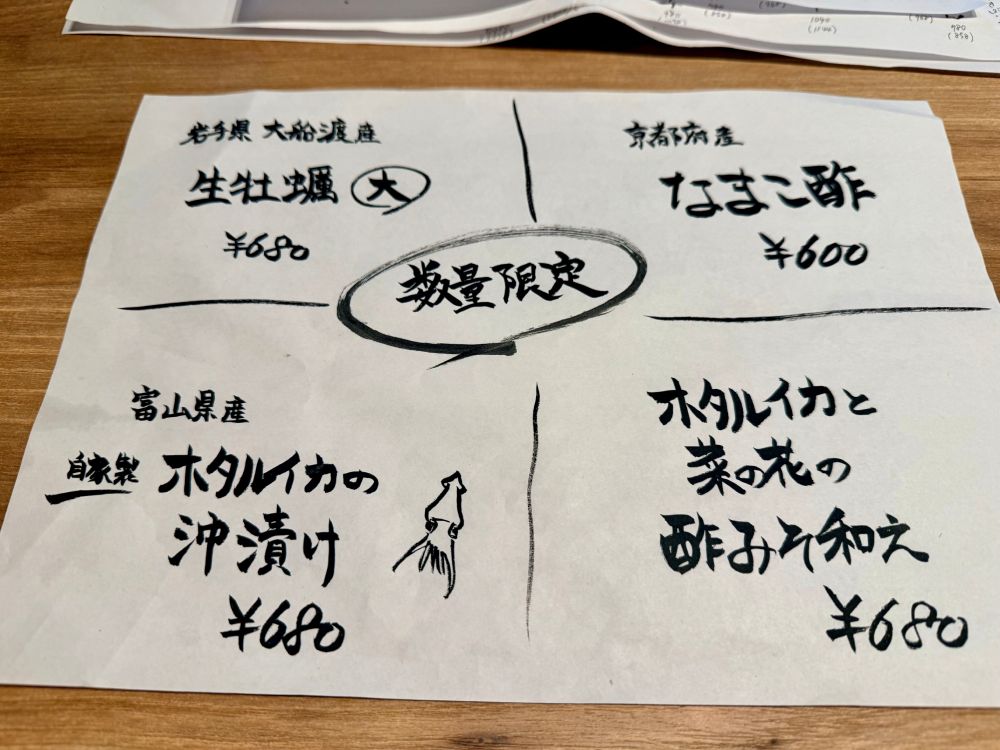 岩手県 大船渡産
生牡蠣 大
¥680
京都府産
なまこ酢
¥600
数量限定
富山県産
自家製 ホタルイカの
沖漬け
¥680
ホタルイカと
菜の花の
酢みそ和え
¥680